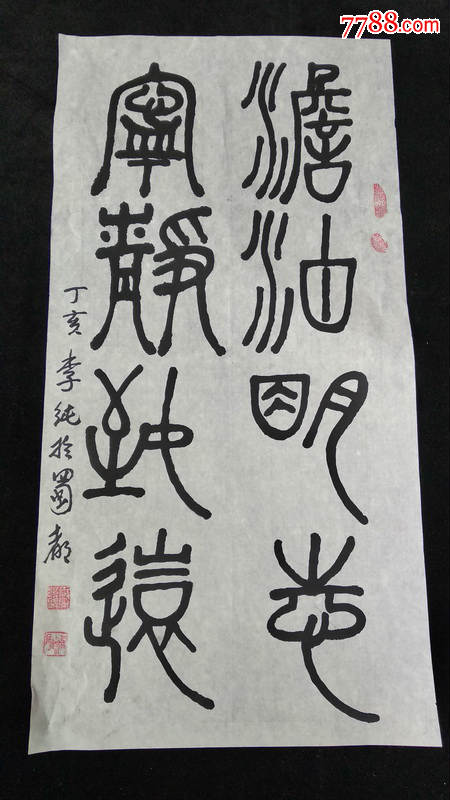 7788.com
澹泊明志
寧靜致遠
丁亥李純於蜀都